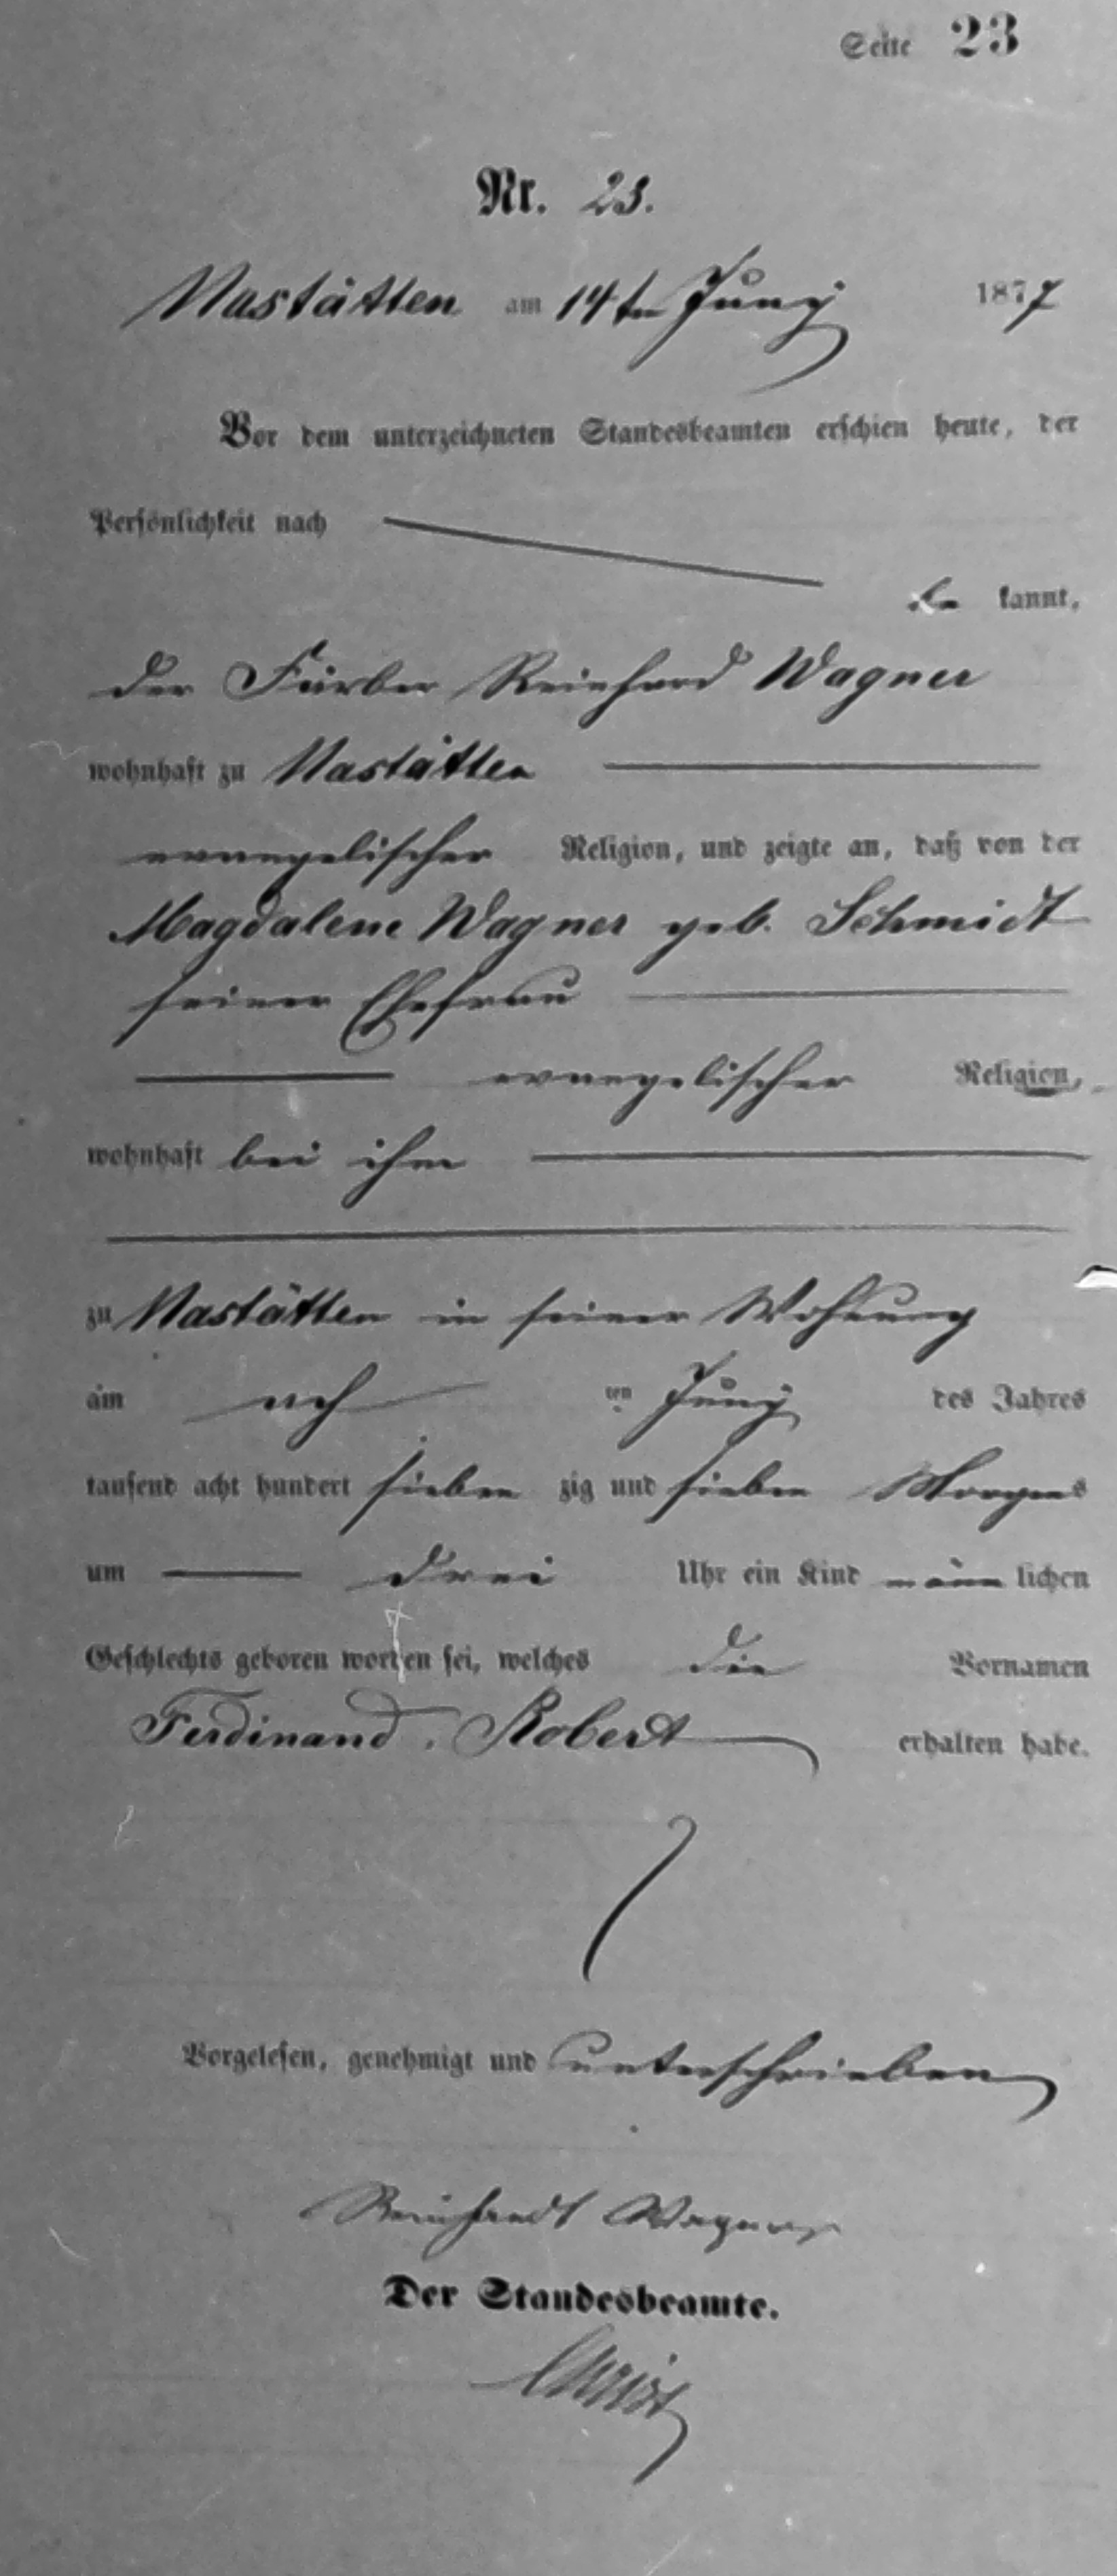 Seite 23
Nr. 23.
Nastätten am 14ten Juny 1877
Vor dem unterzeichneten Standesbeamten erschien heute, der
Persönlichkeit nach
be kannt,
der Färber Reinhard Wagner
wohnhaft zu Nastätten
evangelischer Religion, und zeigte an, daß von der
Magdalene Wagner geb. Schmidt
seiner Ehefrau
evangelischer Religion,
wohnhaft bei ihm
zu Nastätten in seiner Wohnung
am ten Juny des Jahres
tausend acht hundert sieben zig und sieben Morgens
um drei Uhr ein Kind männ lichen
Geschlechts geboren worden sei, welches die Vornamen
Ferdinand. Robert erhalten habe.
Vorgelesen, genehmigt und unterschrieben
Reinhardt Wagner
Der Standesbeamte.